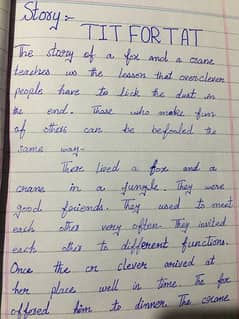 Story:-
TIT FOR TAT
The story of a fox and a crane
teaches us the lesson that overclever
people have to lick the dust in
the end. Those who make fun
of others can be befooled the
same way.
There lived a fox and a
crane in a jungle. They were
good friends. They used to meet
each other very often. They invited
each other to different functions.
Once the cr clever arived at
her place well in time. The fox
offered him to dinner. The crane